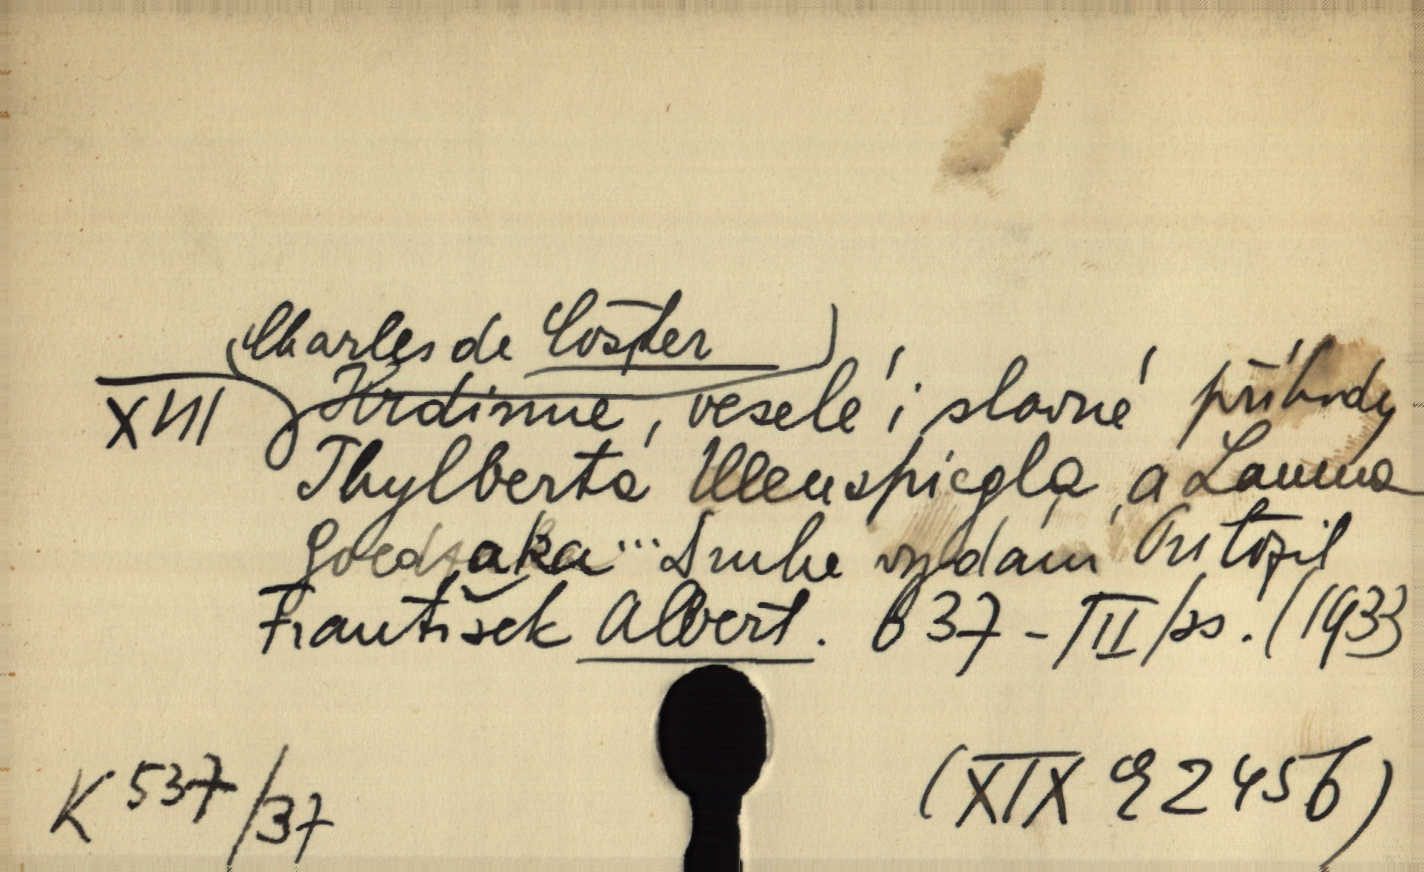 (Charles de Coster)
XVII Hrdinné, veselé i slavné příhody
Thylberta Ulenspiegla a Lamma
Goedzaka... Druhé vydání Přeložil
František Albert. 637-III/ss. (1933
K 537/37 (XIX E 2456)